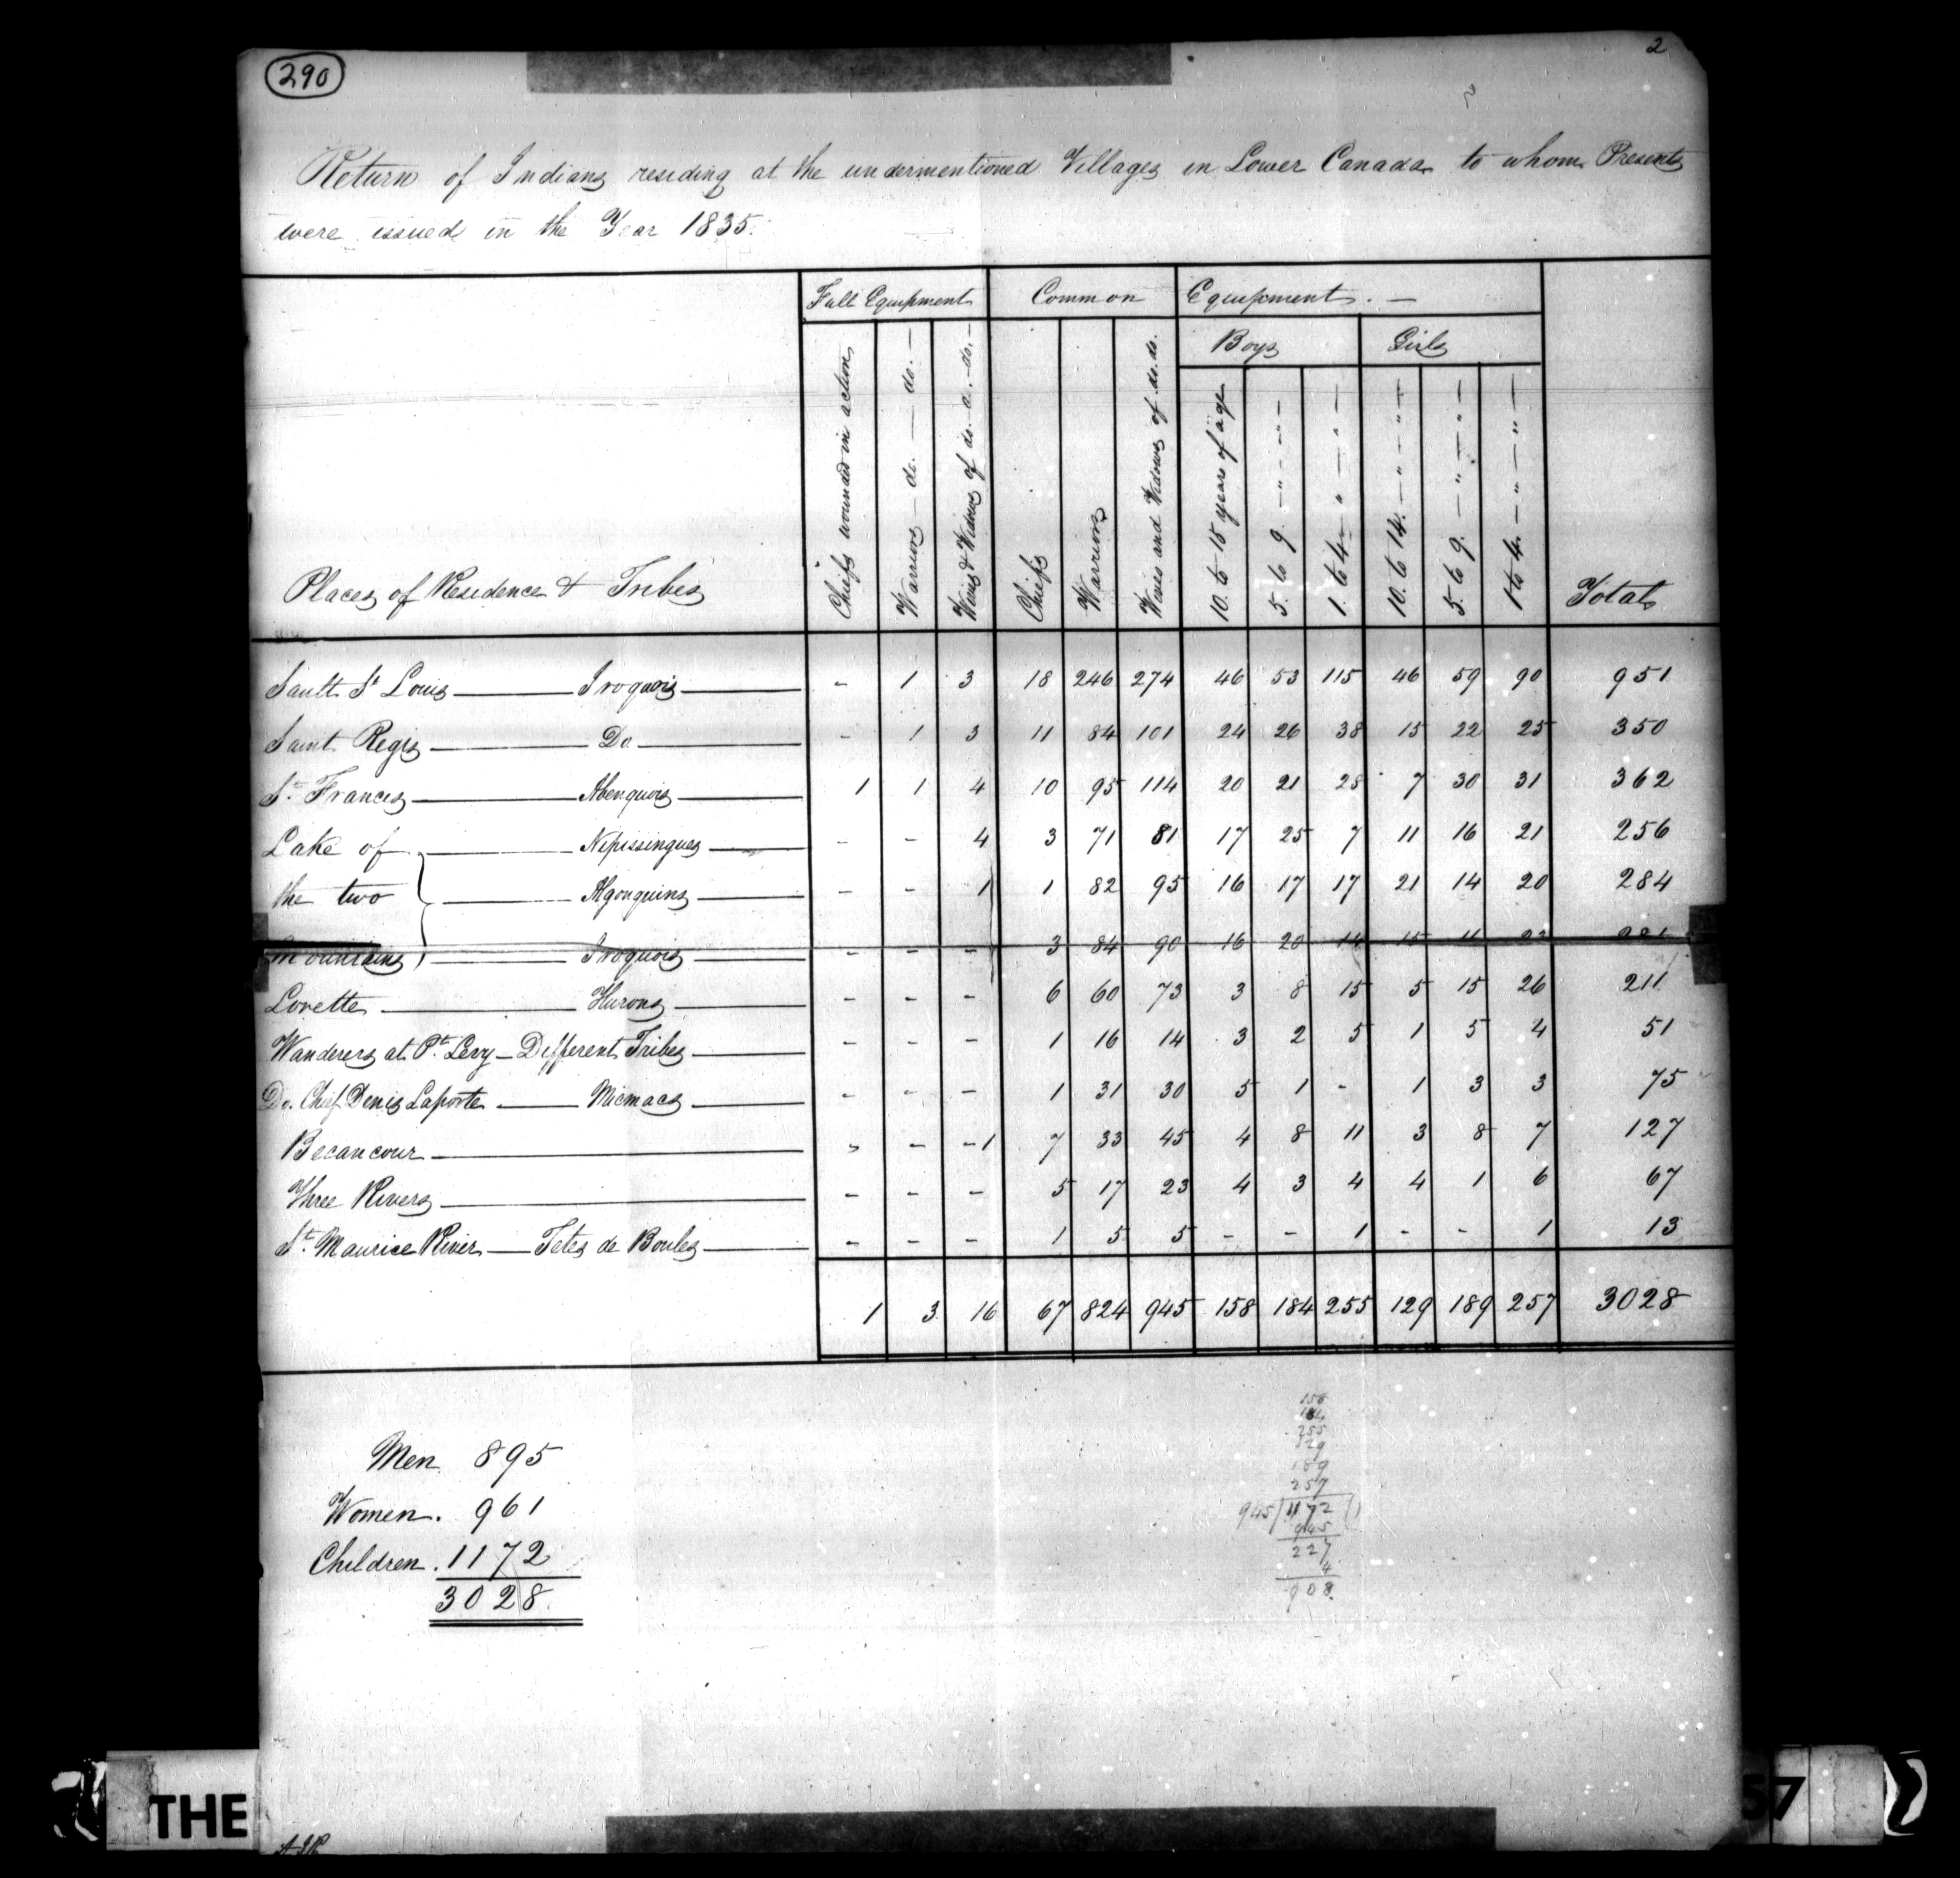 290
2
Return of Indians residing at the undermentioned Villages in Lower Canada to whom Presents
were issued in the Year 1835.
Full Equipment Common Equipment. —
Boys Girls
Places of Residence & Tribes
Chiefs wounded in action
Warriors — do. — do. —
Wives & Widows of do. a. - do. -
Chiefs
Warriors
Wives and Widows of do. do.
10. to 15 years of age
5. to 9. — " — " —
1. to 4 — " — " —
10. to 14. — " — " —
5. to 9. — " — " —
1 to 4. — " — " —
Total
Sault St Louis — Iroquois — - 1 3 18 246 274 46 53 115 46 59 90 951
Saint Regis — Do — - 1 3 11 84 101 24 26 38 15 22 25 350
St. Francis — Abenquois — 1 1 4 10 95 114 20 21 28 7 30 31 362
Lake of — Nipissingues — - - 4 3 71 81 17 25 7 11 16 21 256
the two — Algonquins — - - 1 1 82 95 16 17 17 21 14 20 284
Mountains — Iroquois — - - - 3 84 90 16 20 14 15 16 23 281
Lorette — Hurons — - - - 6 60 73 3 8 15 5 15 26 211
Wanderers at Pt. Levy — Different Tribes — - - - 1 16 14 3 2 5 1 5 4 51
Do. Chief Denis Laporte — Micmacs — - - - 1 31 30 5 1 - 1 3 3 75
Becancour — - - - 1 7 33 45 4 8 11 3 8 7 127
Three Rivers — - - - 5 17 23 4 3 4 4 1 6 67
St. Maurice River — Tetes de Boules — - - - 1 5 5 - - 1 - - 1 13
1 3 16 67 824 945 158 184 255 129 189 257 3028
Men 895
Women. 961
Children. 1172
3028
158
184
255
129
189
257
945 1172 1
945
227
4
908
THE
57